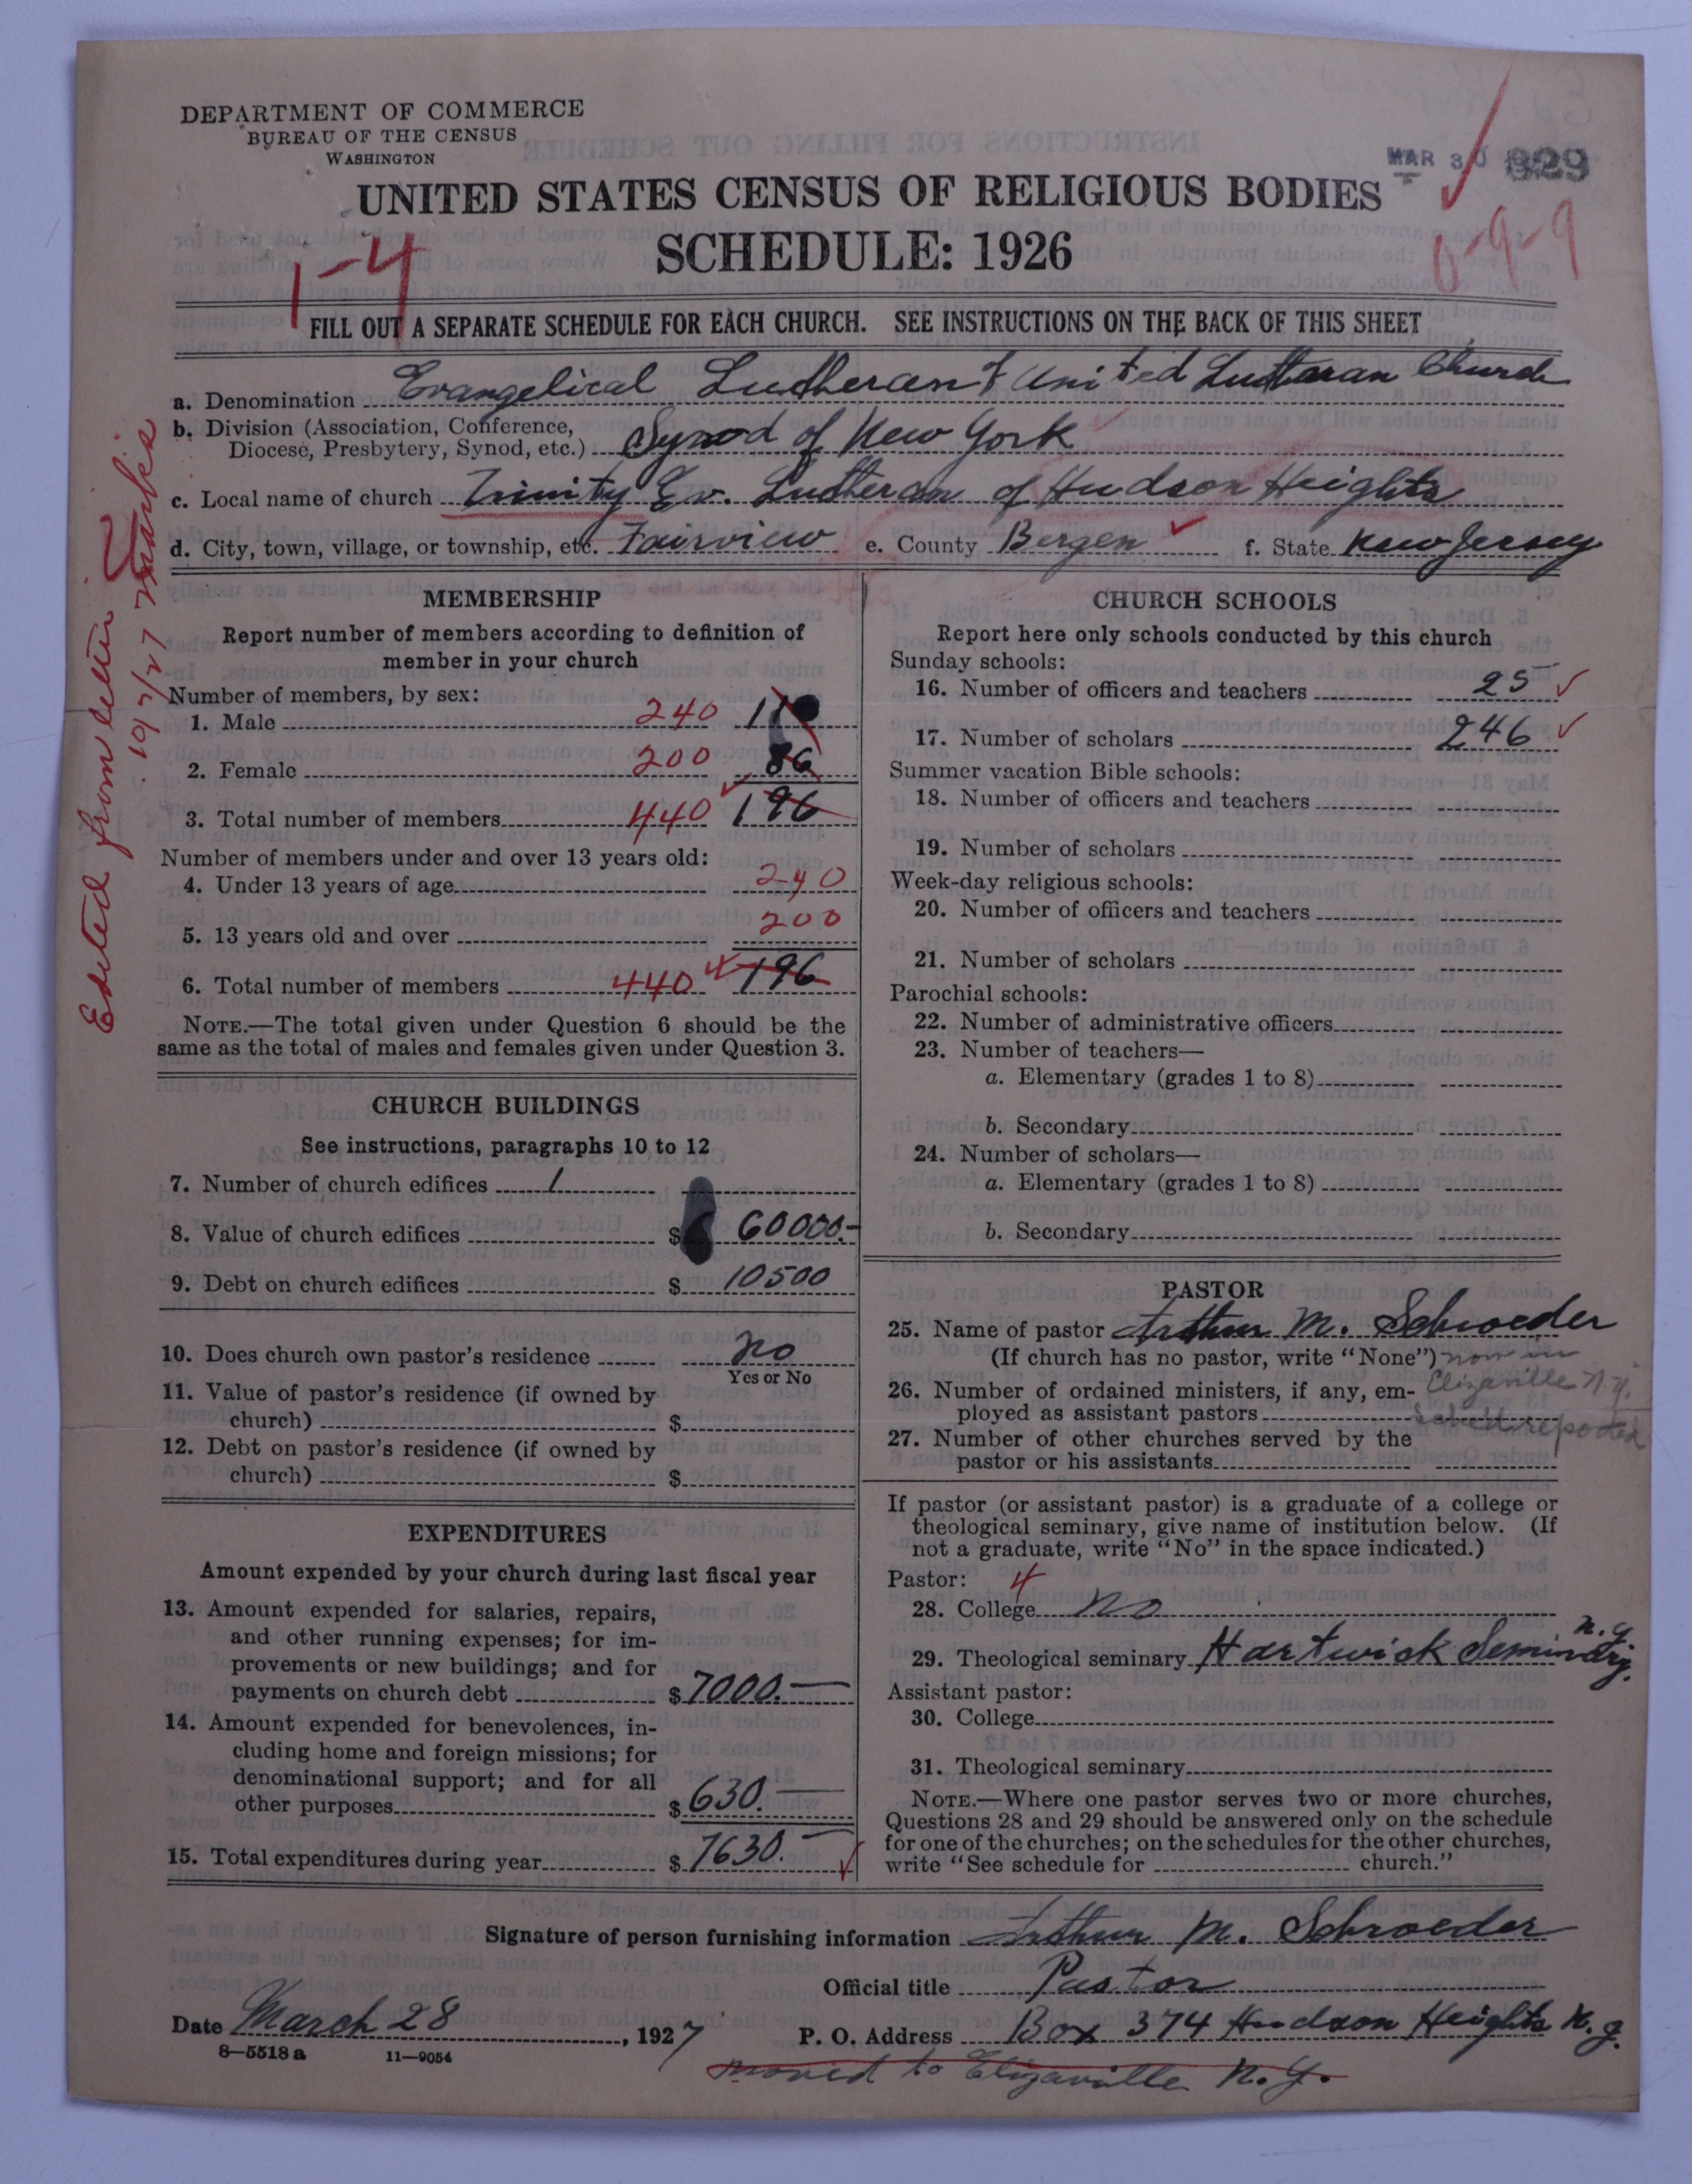 DEPARTMENT OF COMMERCE
BUREAU OF THE CENSUS
WASHINGTON
MAR 30 929
UNITED STATES CENSUS OF RELIGIOUS BODIES
SCHEDULE: 1926
1-4
0-9-9
FILL OUT A SEPARATE SCHEDULE FOR EACH CHURCH. SEE INSTRUCTIONS ON THE BACK OF THIS SHEET
a. Denomination Evangelical Lutheran United Lutheran Church
b. Division (Association, Conference,
Diocese, Presbytery, Synod, etc.) Synod of New York
c. Local name of church Trinity Ev. Lutheran of Hudson Heights
d. City, town, village, or township, etc. Fairview e. County Bergen f. State New Jersey
Edited from letter
MEMBERSHIP
Report number of members according to definition of
member in your church
Number of members, by sex:
1. Male 240 110
2. Female 200 86
3. Total number of members 440 196
Number of members under and over 13 years old:
4. Under 13 years of age 240
5. 13 years old and over 200
6. Total number of members 440 196
NOTE.—The total given under Question 6 should be the
same as the total of males and females given under Question 3.
CHURCH BUILDINGS
See instructions, paragraphs 10 to 12
7. Number of church edifices 1
8. Value of church edifices $ 60000.-
9. Debt on church edifices $ 10500
10. Does church own pastor's residence no
Yes or No
11. Value of pastor's residence (if owned by
church) $
12. Debt on pastor's residence (if owned by
church) $
EXPENDITURES
Amount expended by your church during last fiscal year
13. Amount expended for salaries, repairs,
and other running expenses; for im-
provements or new buildings; and for
payments on church debt $ 7000.—
14. Amount expended for benevolences, in-
cluding home and foreign missions; for
denominational support; and for all
other purposes $ 630.—
15. Total expenditures during year $ 7630.—
CHURCH SCHOOLS
Report here only schools conducted by this church
Sunday schools:
16. Number of officers and teachers 25
17. Number of scholars 246
Summer vacation Bible schools:
18. Number of officers and teachers
19. Number of scholars
Week-day religious schools:
20. Number of officers and teachers
21. Number of scholars
Parochial schools:
22. Number of administrative officers
23. Number of teachers—
a. Elementary (grades 1 to 8)
b. Secondary
24. Number of scholars—
a. Elementary (grades 1 to 8)
b. Secondary
PASTOR
25. Name of pastor Arthur M. Schroeder
(If church has no pastor, write "None") now in
26. Number of ordained ministers, if any, em- Elizaville N.Y.
ployed as assistant pastors reported
27. Number of other churches served by the
pastor or his assistants
If pastor (or assistant pastor) is a graduate of a college or
theological seminary, give name of institution below. (If
not a graduate, write "No" in the space indicated.)
Pastor: 4
28. College no
29. Theological seminary Hartwick Seminary. N.Y.
Assistant pastor:
30. College
31. Theological seminary
NOTE.—Where one pastor serves two or more churches,
Questions 28 and 29 should be answered only on the schedule
for one of the churches; on the schedules for the other churches,
write "See schedule for church."
Signature of person furnishing information Arthur M. Schroeder
Official title Pastor
Date March 28, 1927 P. O. Address Box 374 Hudson Heights N.J.
8—5518 a 11—9054
moved to Elizaville N.Y.